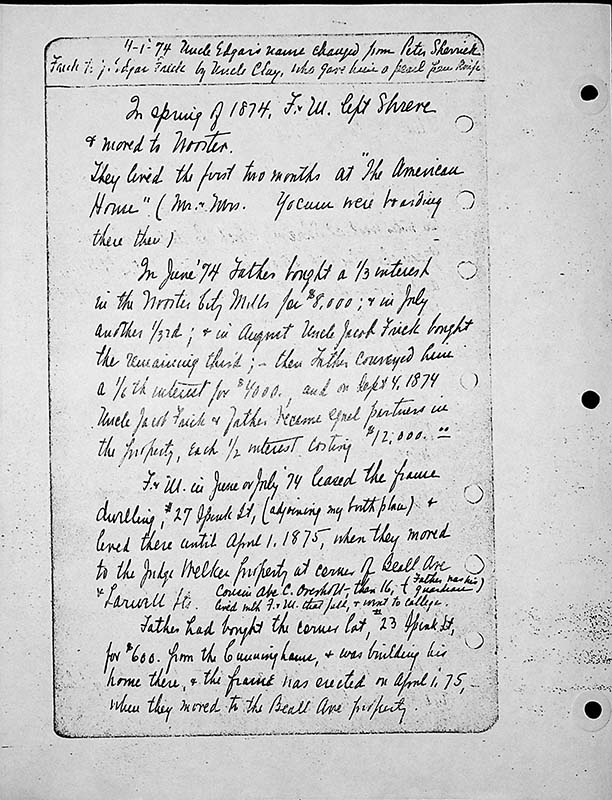 4-1-'74 Uncle Edgar's name changed from Peter Sherrick
Frick to J. Edgar Frick by Uncle Clay, who gave him a pearl
In spring of 1874, F. & M. left Shreve
& moved to Wooster.
They lived the first two months at "The American
Home" (Mr. & Mrs. Yocum were boarding
there then)
In June '74 Father bought a 1/3 interest
in the Wooster City Mills for $8,000; & in July
another 1/3rd; & in August Uncle Jacob Frick bought
the remaining third; - then Father conveyed him
a 1/6th interest for $4000., and on Sept 4, 1874
Uncle Jacob Frick & Father became equal partners in
the property, each 1/2 interest costing $12,000. =
F. & M. in June or July '74 leased the frame
dwelling, #27 Spink St, (adjoining my birth place) &
lived there until April 1, 1875, when they moved
to the Judge Welker property at corner of Beall Ave
& Larwill Sts. Cousin Abe C. Overholt, then 16, (Father was his guardian)
lived with F. & M. that fall, & went to college.
Father had bought the corner lot, #23 Spink St,
for $600. from the Cunninghams, & was building his
home there, & the frame was erected on April 1, 75, -
when they moved to the Beall Ave property.